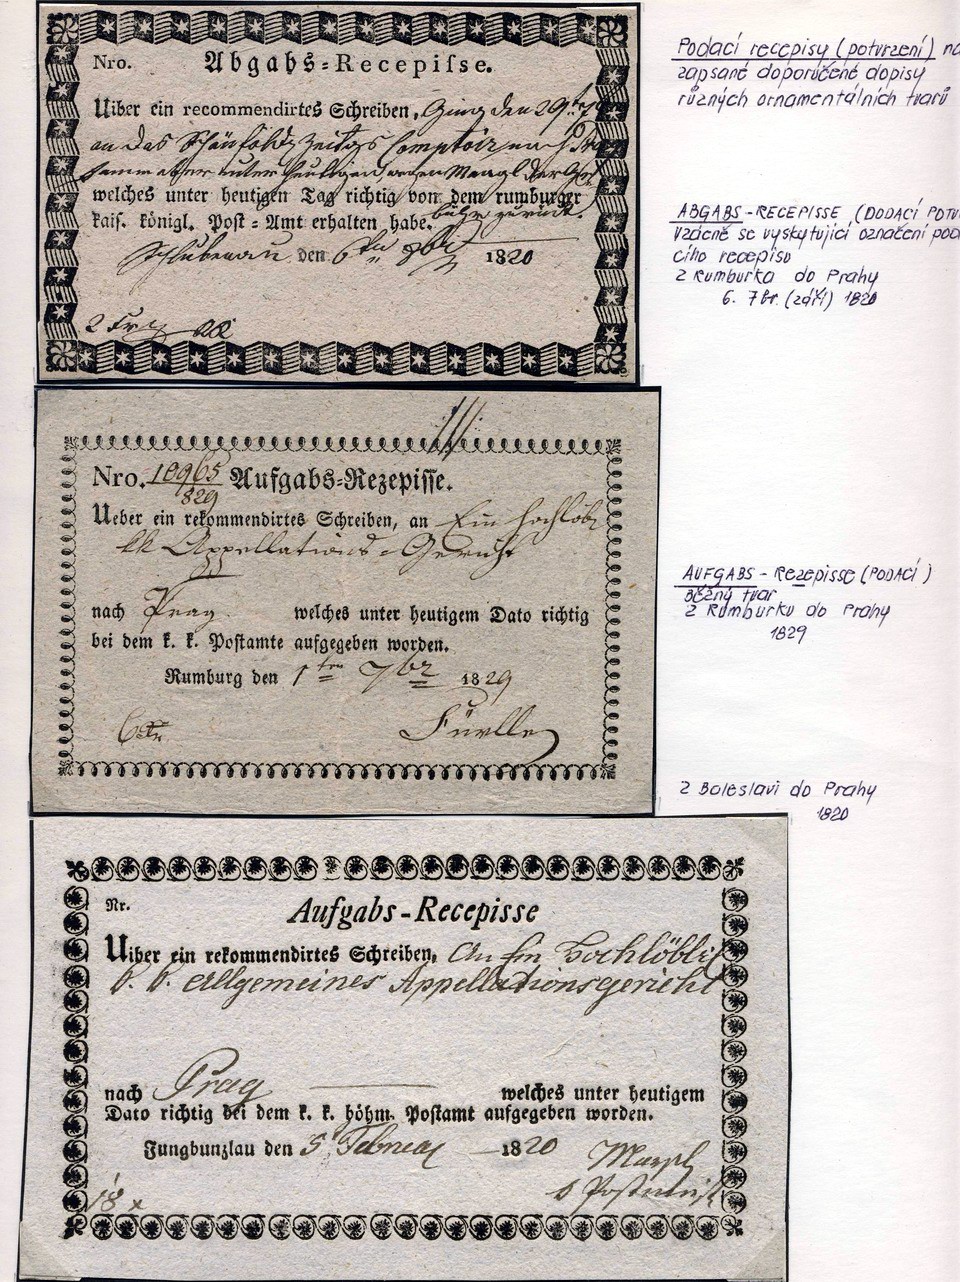 Nro. Abgabs=Recepisse.
Uiber ein recommendirtes Schreiben, den 29
an das Zeitgs Comptoir nach
welches unter heutigen Tag richtig von dem rumburger
kais. königl. Post=Amt erhalten habe. zurück.
den 6 1820
2
Nro. 10965/829 Aufgabs=Rezepisse.
Ueber ein rekommendirtes Schreiben, an Ein hochlöbl
kk Appellations=Gericht
nach Prag welches unter heutigem Dato richtig
bei dem k. k. Postamte aufgegeben worden.
Rumburg den 1ten 7br 1829
Nr. Aufgabs-Recepisse
Uiber ein rekommendirtes Schreiben, An Ein Hochlöbli
k. k. Allgemeines Appellationsgericht
nach Prag welches unter heutigem
Dato richtig bei dem k. k. böhm. Postamt aufgegeben worden.
Jungbunzlau den 5 Februar 1820
18 x
Podací recepisy (potvrzení) na
zapsané doporučené dopisy
různých ornamentálních tvarů
ABGABS-RECEPISSE (DODACÍ POTV
Vzácně se vyskytující označení pod
cího recepisu
z Rumburka do Prahy
6. 7br. (září) 1820
AUFGABS-Rezepisse (PODACÍ)
Běžný tvar
z Rumburku do Prahy
1829
z Boleslavi do Prahy
1820